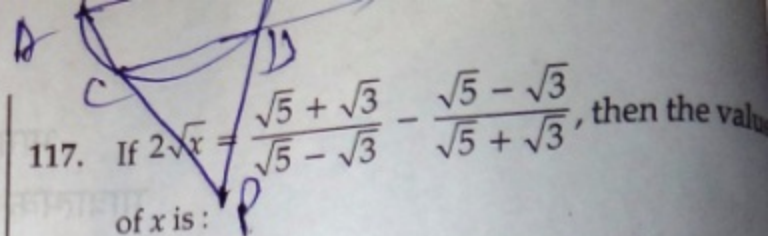 A
C
D
117. If 2√x = (√5 + √3)/(√5 − √3) − (√5 − √3)/(√5 + √3), then the
of x is :
P